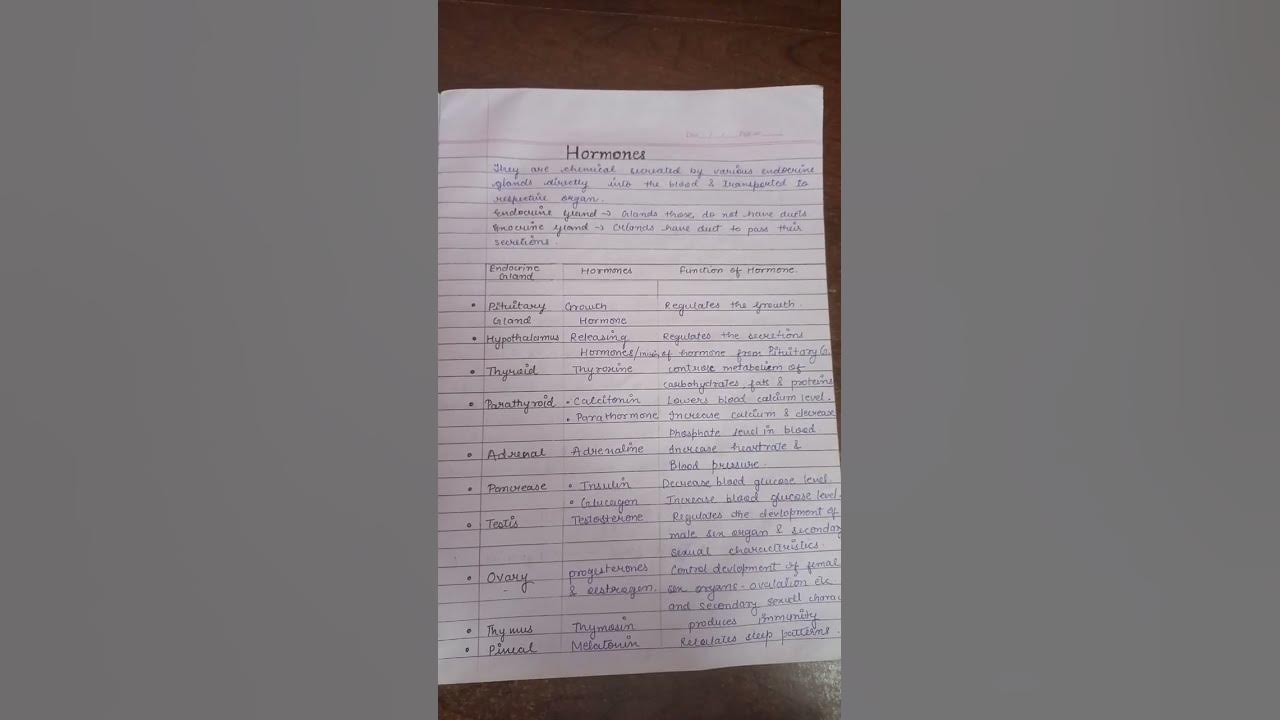 Hormones
They are chemical secreated by various endocrine
glands directly into the blood & transported to
respective organ.
Endocrine gland → Glands those, do not have ducts
Exocrine gland → Glands have duct to pass their
secretions.
Endocrine Gland Hormones Function of Hormone.
• Pituitary Growth Regulates the growth.
Gland Hormone
• Hypothalamus Releasing Regulates the secretions
Hormones/ of hormone from Pituitary G.
• Thyroid Thyroxine controle metabolism of
carbohydrates, fats & proteins
• Parathyroid • Calcitonin Lowers blood calcium level.
• Parathormone Increase calcium & decrease
Phosphate level in blood
• Adrenal Adrenaline Increase heartrate &
Blood pressure.
• Pancrease • Insulin Decrease blood glucose level.
• Glucagon Increase blood glucose level.
• Testis Testosterone Regulates the devlopment of
male sex organ & secondary
sexual characteristics.
• Ovary progesterones Control devlopment of femal
& oestrogen. sex organs - ovulation etc
and secondary sexuell charac
• Thymus Thymosin produces immunity
• Pineal Melatonin sleep patterns.